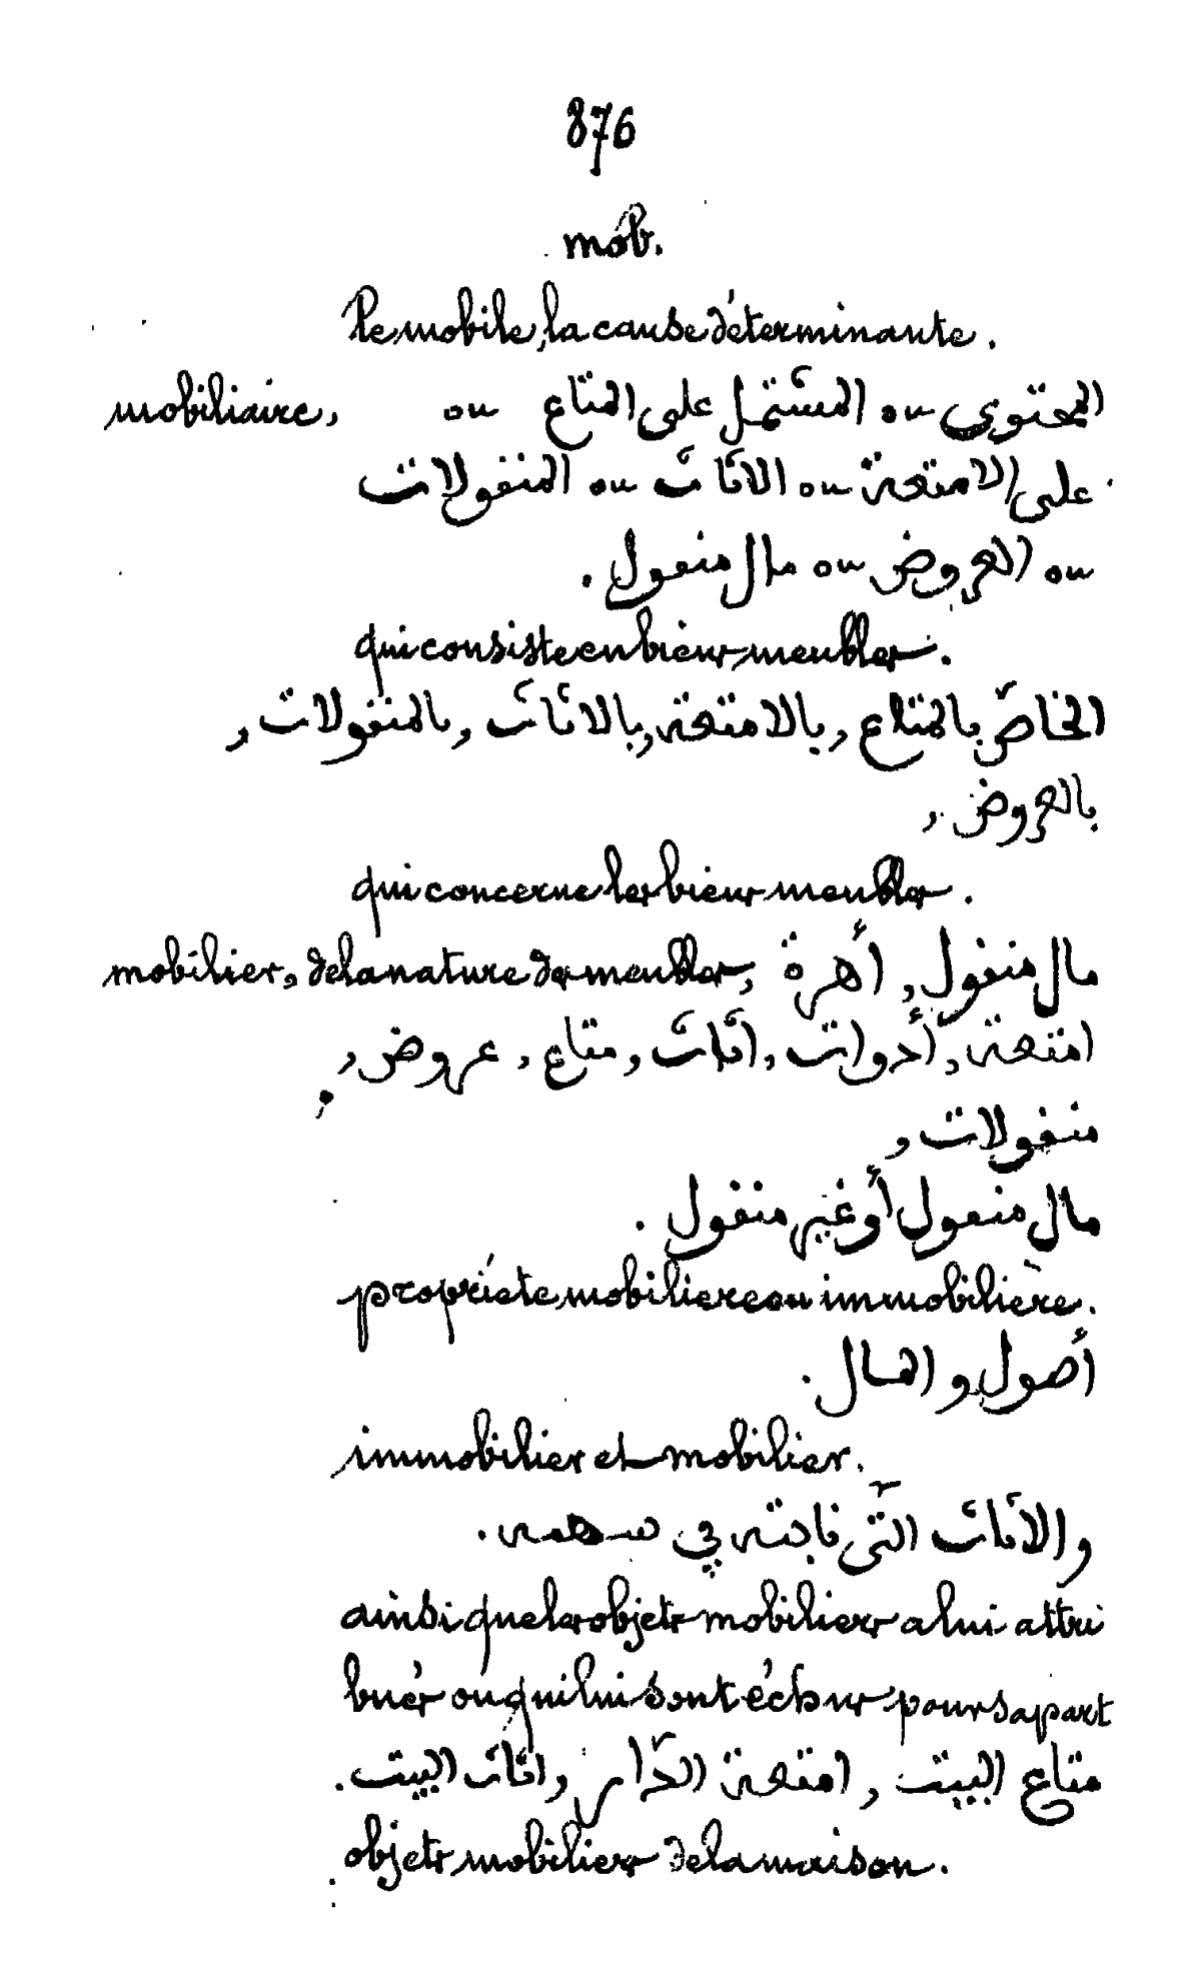 876
mob.
le mobile, la cause déterminante.
mobiliaire, المحتوي ou المشتمل على المتاع ou
على الامتعة ou الاثاث ou المنقولات
ou العروض ou مال منقول.
qui consiste en biens meubles.
الخاصّ بالمتاع, بالامتعة, بالاثاث, بالمنقولات,
بالعروض,
qui concerne les biens meubles.
mobilier, de la nature des meubles, مال منقول, أهرة
امتعة, أدوات, اثاث, متاع, عروض,
منقولات,
مال منقول أو غير منقول.
propriété mobilière ou immobilière.
أصول و المال.
immobilier et mobilier.
والاثاث التّي نابته في سهمه.
ainsi que les objets mobiliers a lui attri
bués ou qui lui sont échus pour sa part
متاع البيت, امتعة الدّار, اثاث البيت.
objets mobiliers de la maison.